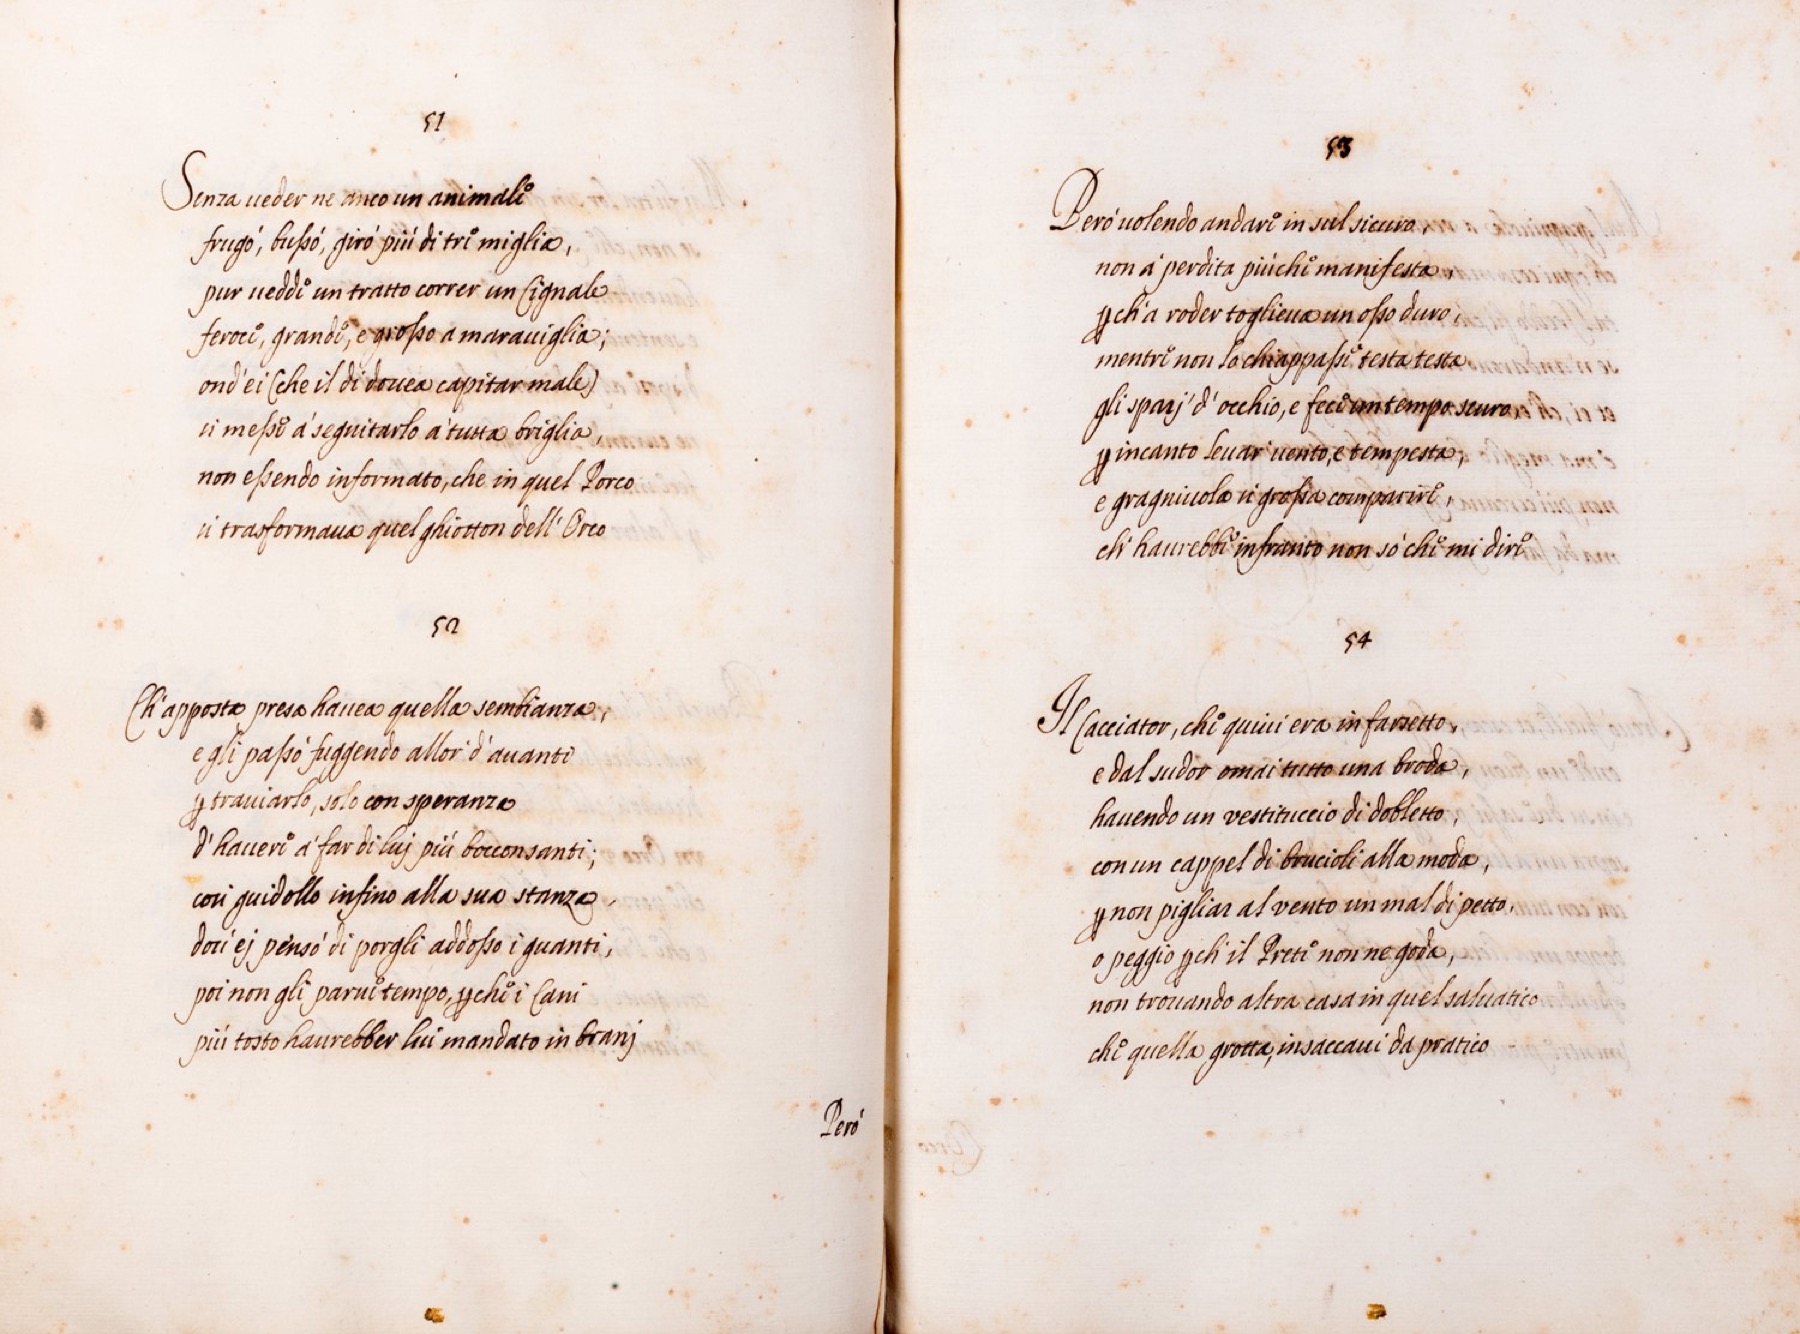 51
Senza ueder ne anco un animale
frugó, bussó, giró piú di tre miglia,
pur uedde un tratto correr un Cignale
feroce, grande, e grosso a marauiglia;
ond'ei (che il di douea capitar male)
si messe á seguitarlo á tutta briglia,
non essendo informato, che in quel Porco
si trasformaua quel ghiotton dell'Orco
52
Ch'apposta presa hauea quella sembianza,
e gli passó fuggendo allor d'auanti
ꝑ trauiarlo, solo con speranza
d'hauere á far di luj piú bocconsanti;
cosi guidollo infino alla sua stanza,
dou'ej pensó di porgli addosso i guanti,
poi non gli parue tempo, ꝑche i Cani
piú tosto haurebber lui mandato in branj
Peró
53
Peró uolendo andare in sul sicuro,
non á perdita piúche manifesta,
ꝑch'a roder toglieua un osso duro,
mentre non lo chiappasse testa testa
gli sparj' d'occhio, e fece un tempo scuro
ꝑ incanto leuar uento, e tempesta,
e gragnuola si grossa comparire,
ch'haurebbe infranto non só che mi dire
54
Il Cacciator, che quiui era in farsetto,
e dal sudor omai tutto una broda,
hauendo un vestituccio di dobletto,
con un cappel di brucioli alla moda,
ꝑ non pigliar al vento un mal di petto,
o peggio ꝑch'il Prete non ne goda,
non trouando altra casa in quel saluatico
che quella grotta, insaccaui da pratico